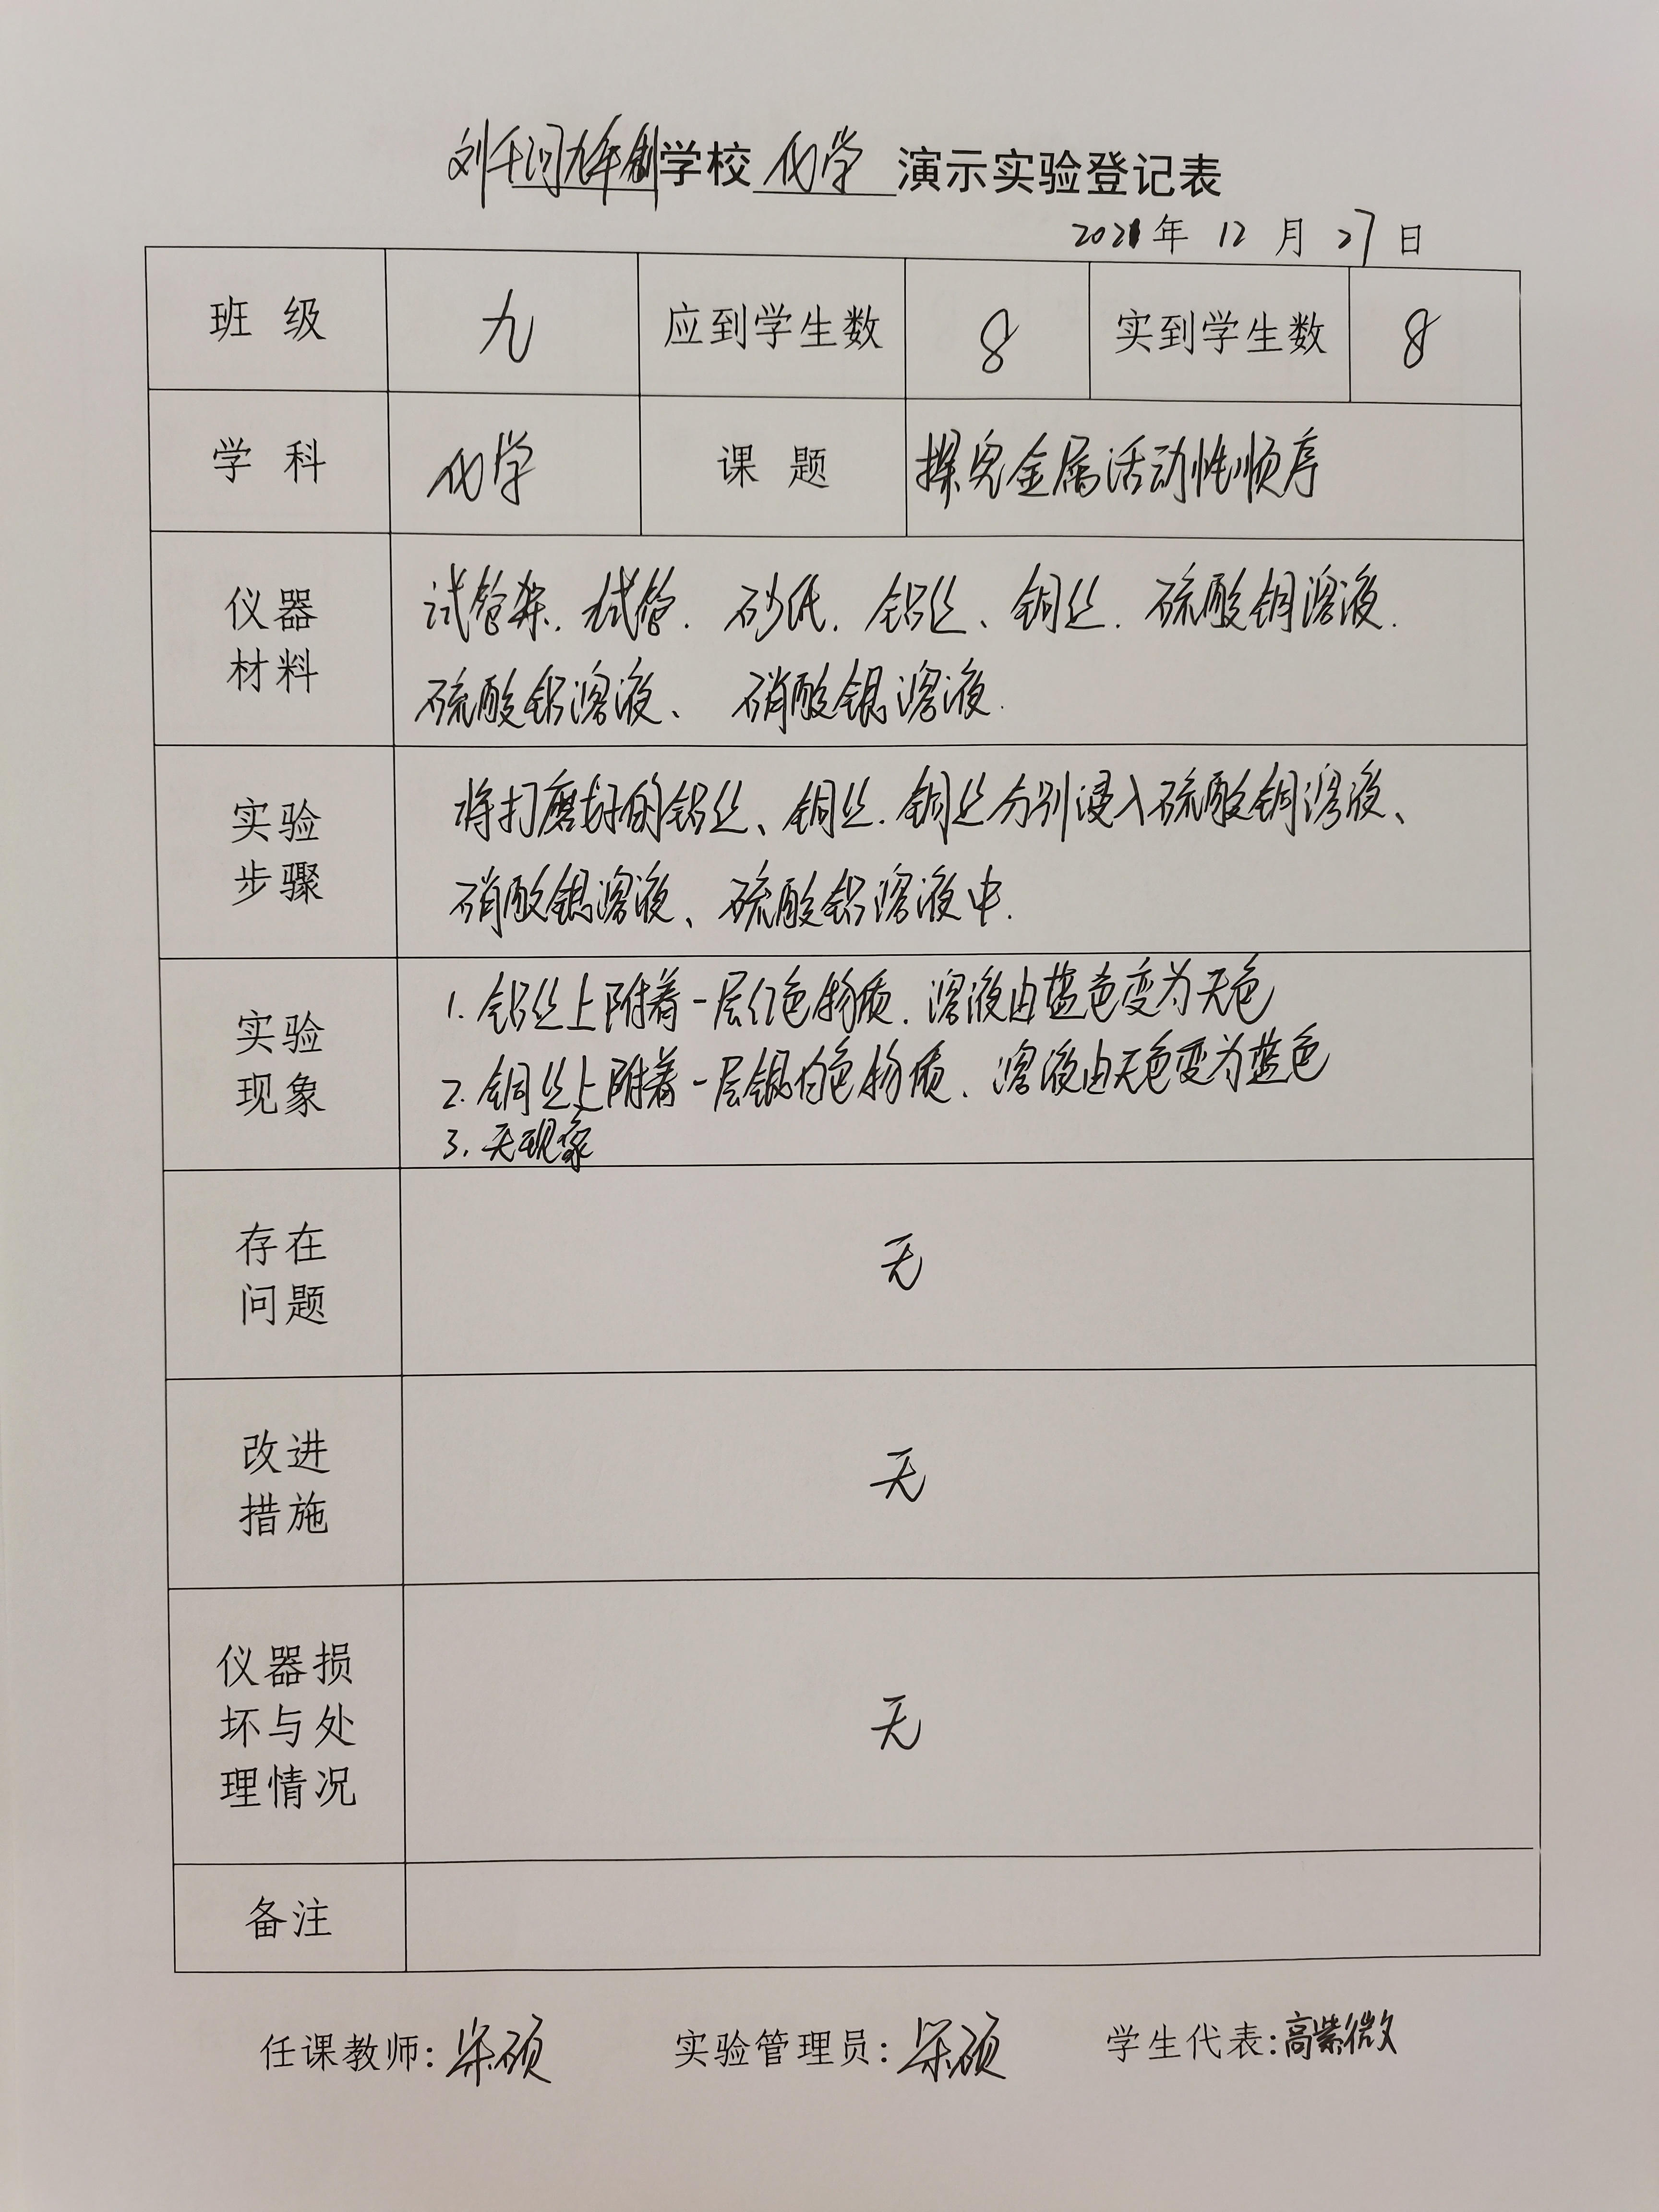 刘千河九年制学校 化学 演示实验登记表
2021年 12 月 27 日
班 级 九 应到学生数 8 实到学生数 8
学 科 化学 课 题 探究金属活动性顺序
仪器
材料
试管架. 试管. 砂纸. 铝丝、铜丝. 硫酸铜溶液.
硫酸铝溶液、 硝酸银溶液.
实验
步骤
将打磨好的铝丝、铜丝. 铜丝分别浸入硫酸铜溶液、
硝酸银溶液、硫酸铝溶液中.
实验
现象
1. 铝丝上附着一层红色物质. 溶液由蓝色变为无色
2. 铜丝上附着一层银白色物质. 溶液由无色变为蓝色
3. 无现象
存在
问题
无
改进
措施
无
仪器损
坏与处
理情况
无
备注
任课教师: 宋硕 实验管理员: 宋硕 学生代表: 高紫微